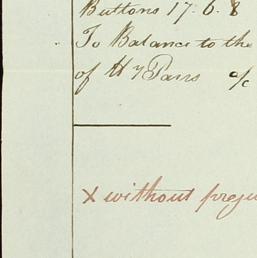 Buttons 17. 6. 8
To Balance to the
of H y Pairs a/c
X without preju